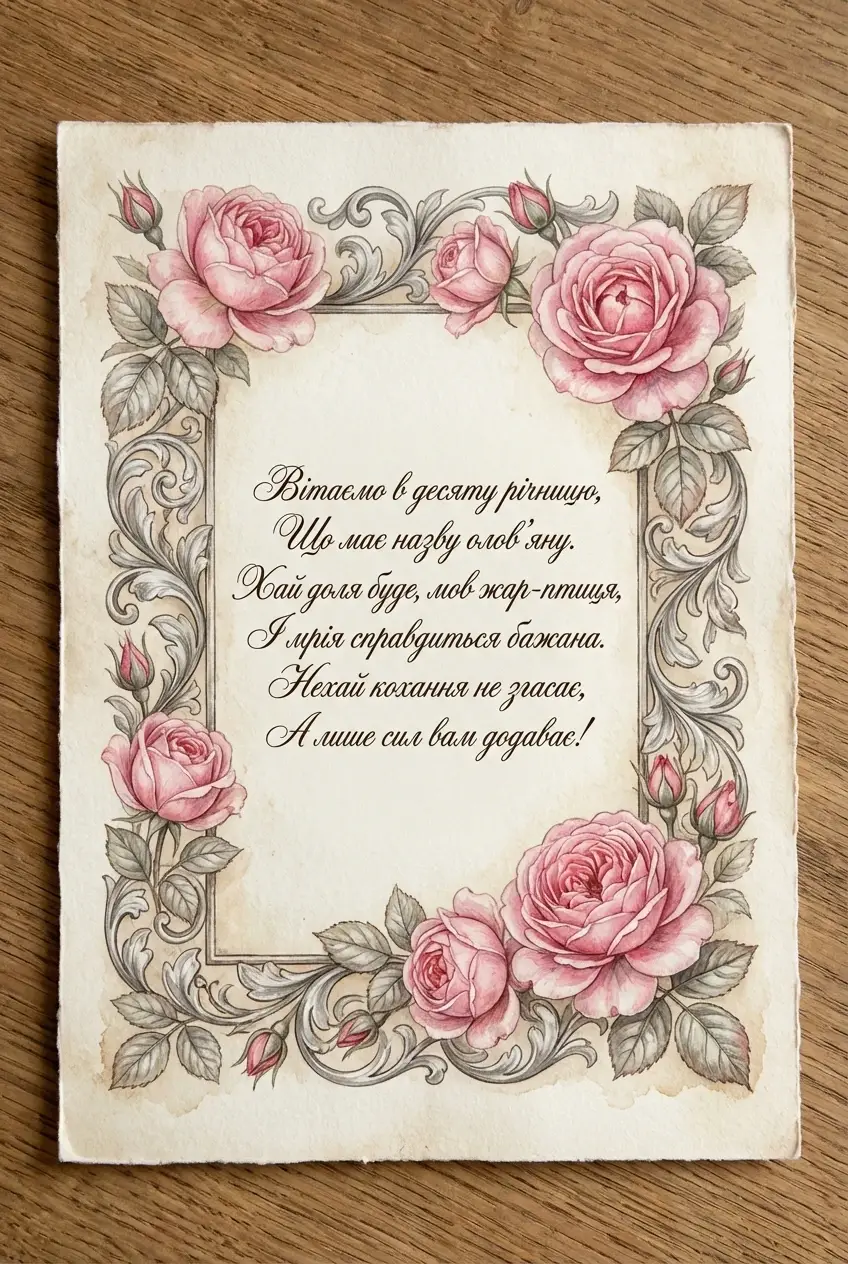 Вітаємо в десяту річницю,
Що має назву олов'яну.
Хай доля буде, мов жар-птиця,
І мрія справдиться бажана.
Нехай кохання не згасає,
А лише сил вам додаває!